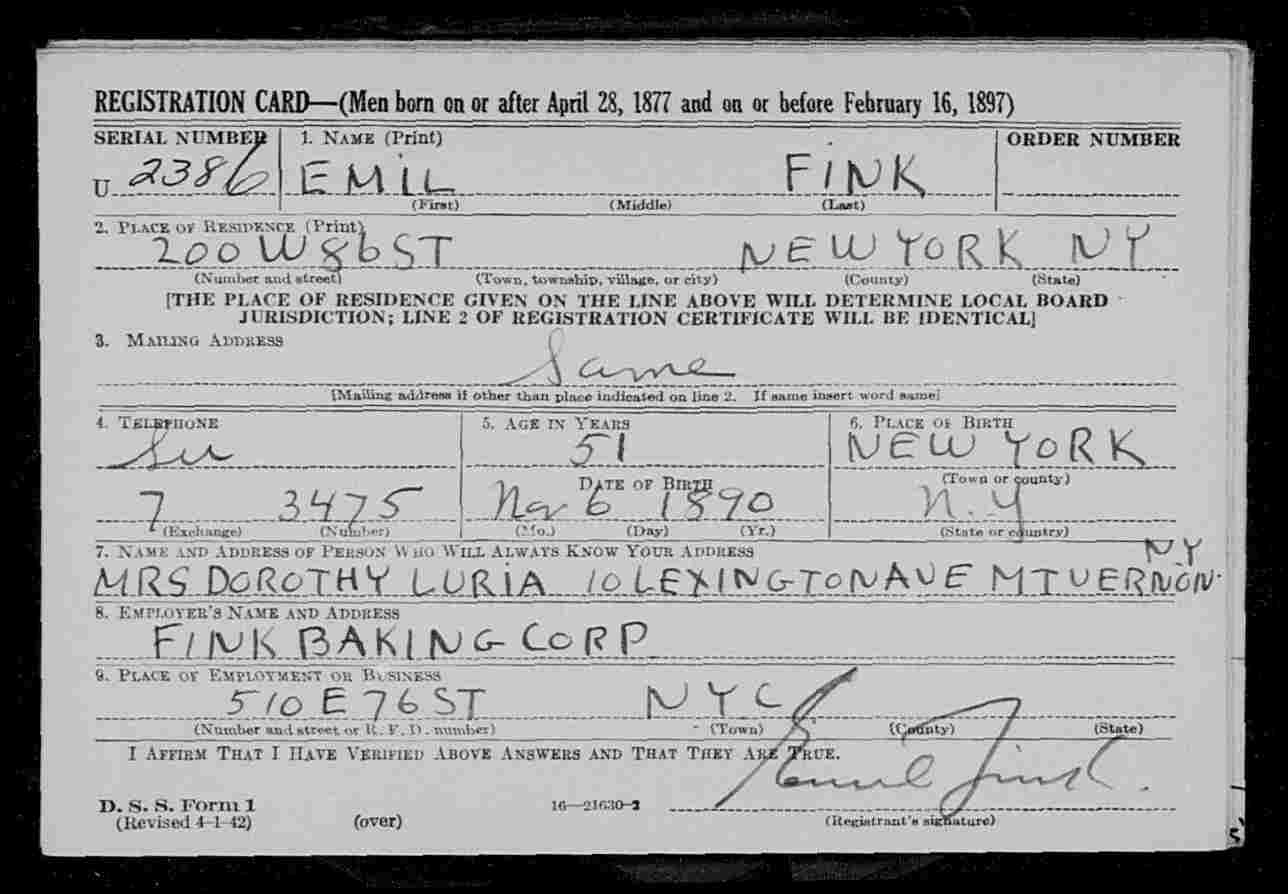 REGISTRATION CARD—(Men born on or after April 28, 1877 and on or before February 16, 1897)
SERIAL NUMBER 1. NAME (Print) ORDER NUMBER
U 2386 EMIL FINK
(First) (Middle) (Last)
2. PLACE OF RESIDENCE (Print)
200 W 86 ST NEW YORK NY
(Number and street) (Town, township, village, or city) (County) (State)
[THE PLACE OF RESIDENCE GIVEN ON THE LINE ABOVE WILL DETERMINE LOCAL BOARD
JURISDICTION; LINE 2 OF REGISTRATION CERTIFICATE WILL BE IDENTICAL]
3. MAILING ADDRESS
Same
[Mailing address if other than place indicated on line 2. If same insert word same]
4. TELEPHONE 5. AGE IN YEARS 6. PLACE OF BIRTH
Su 51 NEW YORK
DATE OF BIRTH (Town or county)
7 3475 Nov 6 1890 N.Y
(Exchange) (Number) (Mo.) (Day) (Yr.) (State or country)
7. NAME AND ADDRESS OF PERSON WHO WILL ALWAYS KNOW YOUR ADDRESS NY
MRS DOROTHY LURIA 10 LEXINGTON AVE MT VERNON
8. EMPLOYER'S NAME AND ADDRESS
FINK BAKING CORP
9. PLACE OF EMPLOYMENT OR BUSINESS
510 E 76 ST NYC
(Number and street or R. F. D. number) (Town) (County) (State)
I AFFIRM THAT I HAVE VERIFIED ABOVE ANSWERS AND THAT THEY ARE TRUE.
Emil Fink.
D. S. S. Form 1 16—21630-2
(Revised 4-1-42) (over) (Registrant's signature)